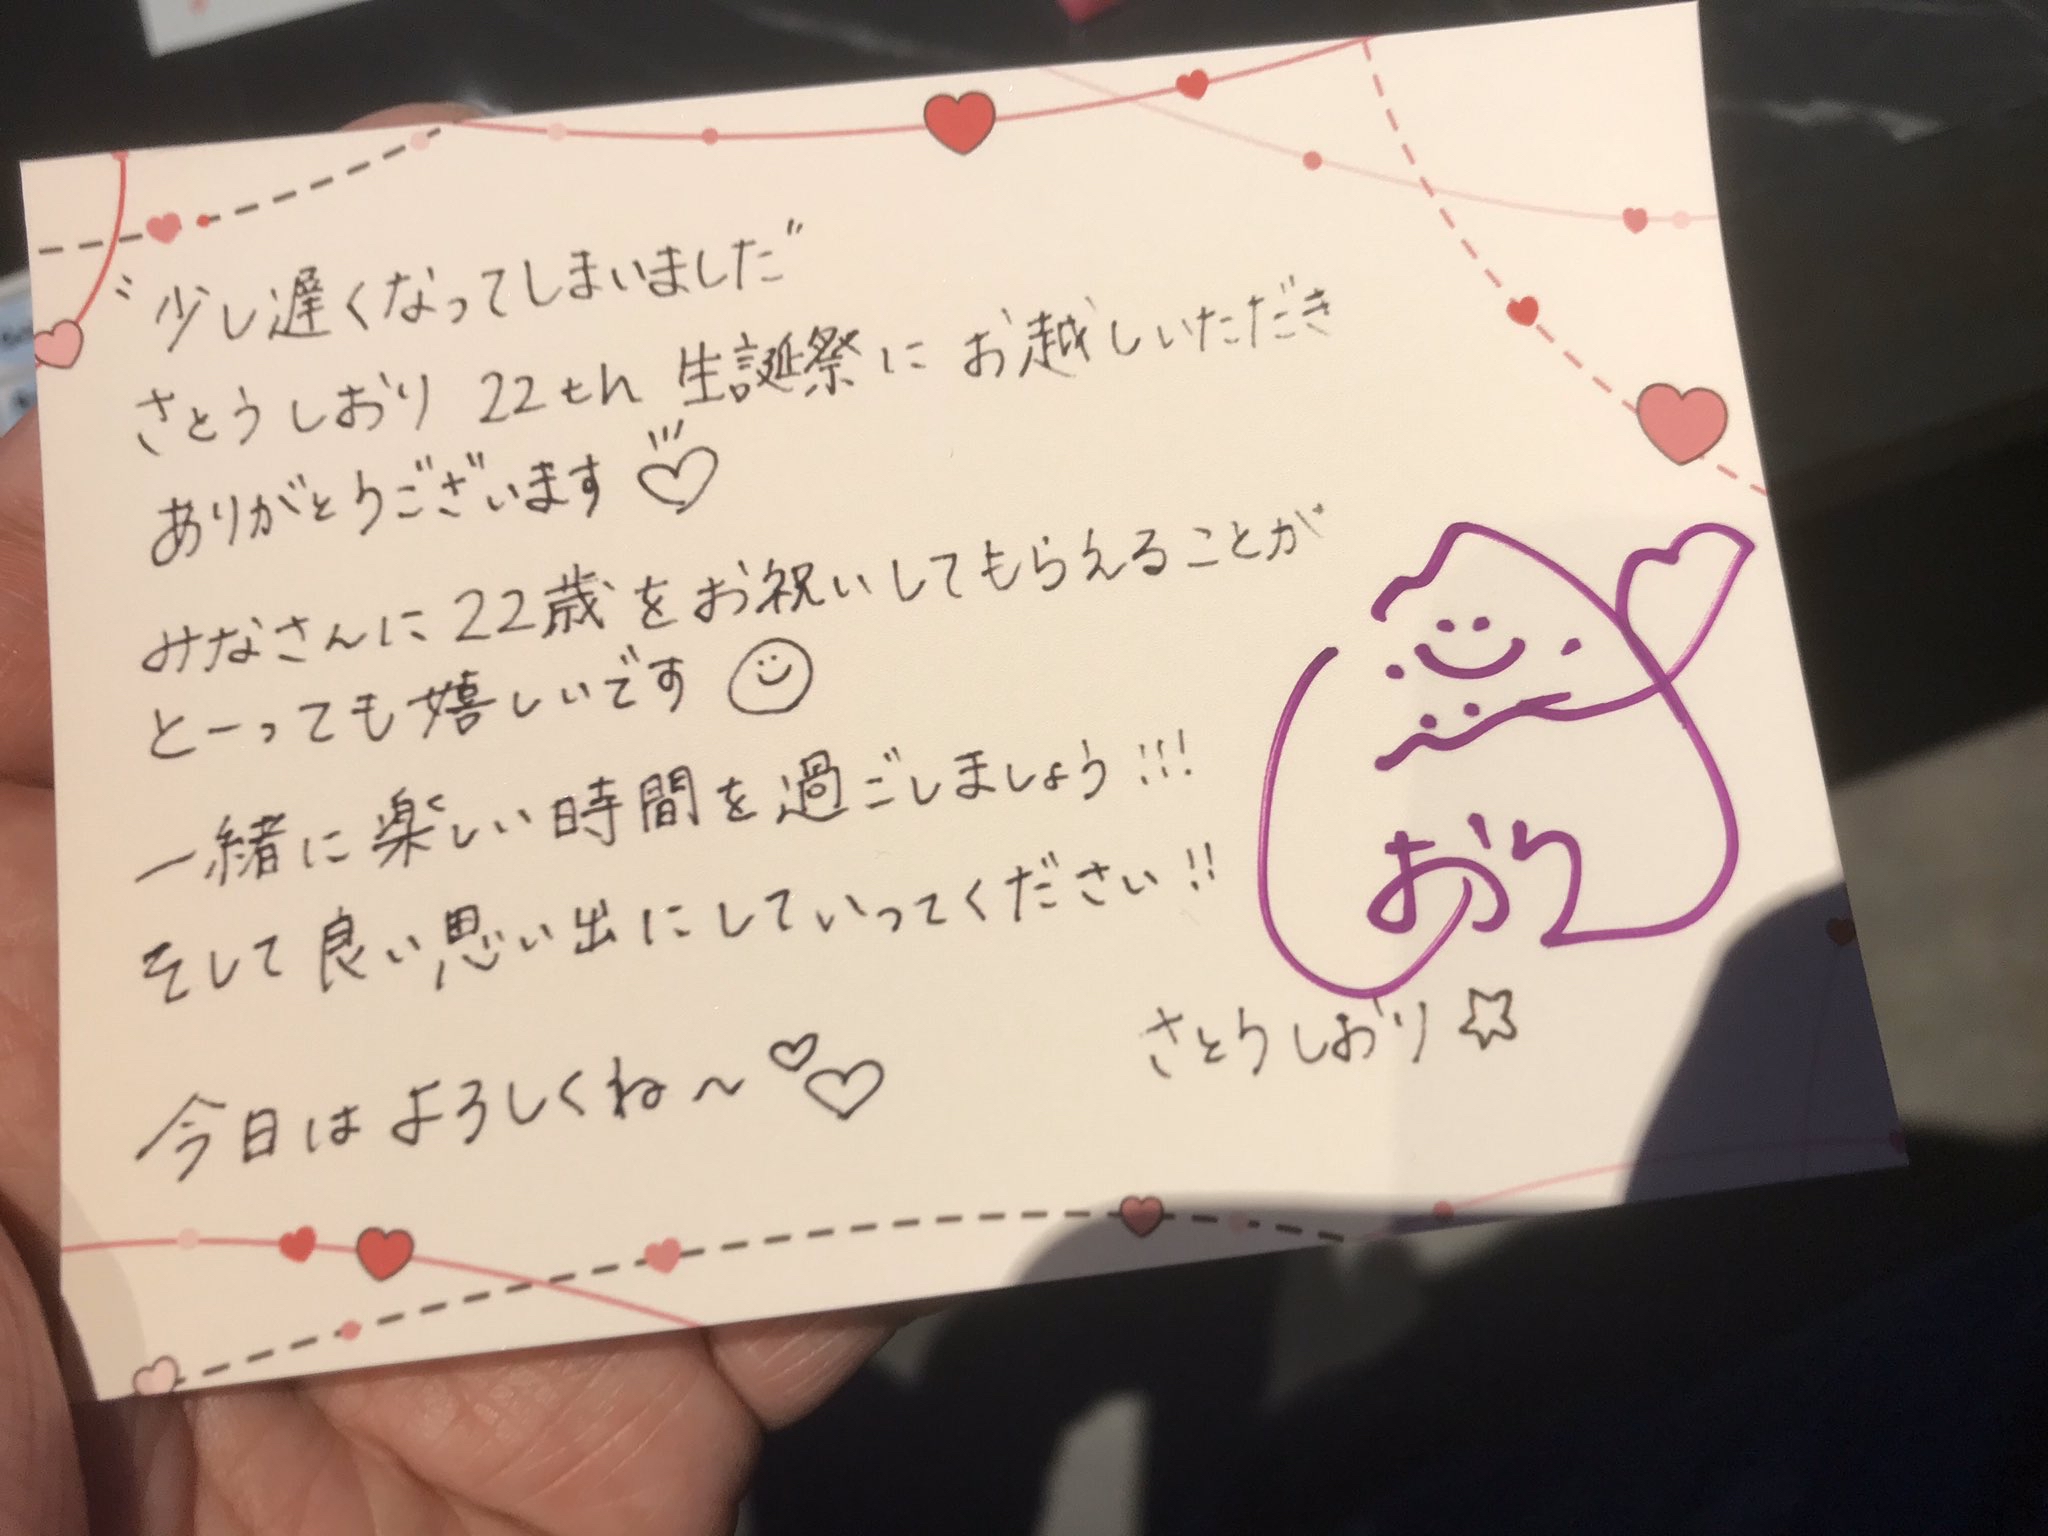 "少し遅くなってしまいました"
さとうしおり 22th 生誕祭に お越しいただき
ありがとうございます♡
みなさんに22歳をお祝いしてもらえることが
とーっても嬉しいです
一緒に楽しい時間を過ごしましょう!!!
そして良い思い出にしていってください!!
今日はよろしくね〜♡♡
おり
さとうしおり☆